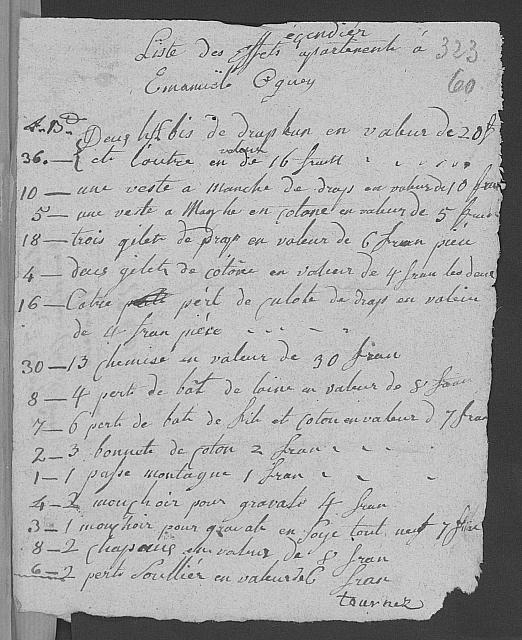 égendiér
Liste des effets apartenente á 323
Emanuele Oguey 60
Deus de drap l'un en valeur de 20 f
36. — et l'autre en valeur de 16 fran
10 — une veste a manche de drap en valeur de 10 fran
5 — une veste a Manghe en cotone en valeur de 5 fran
18 — trois gilet de drap en valeur de 6 fran piéu
4 — deus gilet de cotone en valuer de 4 fran les deus
16 — Catre péri de culote de drap en valeur
de 4 fran piéce
30 — 13 chemise en valeur de 30 fran
8 — 4 perti de bât de laine en valeur de 8 fran
7 — 6 perti de bate de fil et coton en valeur d 7 fran
2 — 3 bonnete de coton 2 fran
1 — 1 passe montagne 1 fran
4 — 2 mouchoir pour gravate 4 fran
3 — 1 mouchoir pour gravate en soye tout neuf fran
8 — 2 chapeaus en valeur de 8 fran
6 — 2 perti Soulliér en valeur de 6 fran
tournez